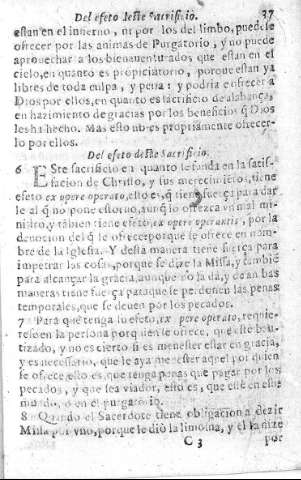 Del efeto deste Sacrificio. 37
estan en el infierno, ni por los del limbo, puedese
ofrecer por las animas de Purgatorio, y no puede
aprouechar a los bienauenturados que estan en el
cielo, en quanto es propiciatorio, porque estan ya
libres de toda culpa, y pena: y podria e ofrecer a
Dios por ellos, en quanto es sacrificio de alabança,
en hazimiento de gracias por los beneficios q̃ Dios
les ha hecho. Mas esto no es propriamente ofrecer-
lo por ellos.
Del efeto deste Sacrificio.
6 ESte sacrificio en quanto se funda en la satis-
facion de Christo, y sus merecimiẽtos, tiene
efeto ex opere operato, esto es, q̃ tiene fuerça para dar
le al q̃ no pone estorno, aunq̃ lo ofrezca vn mal mi-
nistro, y tãbien tiene efeto, ex opere operantis, por la
deuocion del q̃ le ofrece, o porque se ofrece en nom-
bre de la Iglesia. Y desta manera tiene fuerça para
impetrar las cosas, porque se dize la Missa, y tambiẽ
para alcançar la gracia, aunque no la dà, y de an bas
maneras tiene fuerça para que se perdonen las penas
temporales, que se deuen por los pecados.
7 Para que tenga su efeto, ex opere operato, requie-
rese en la persona por quien se ofrece, que esté bau-
tizado, y no es cierto si es menester estar en gracia,
y es necessario, que le aya menester aquel por quien
se ofrece, esto es, que tenga penas que pagar por los
pecados, y que sea viador, esto es, que esté en este
mundo, ò en el purgatorio.
8 Quando el Sacerdote tiene obligacion a dezir
Missa por vno, porque le diò la limosna, y el la dize
C 3 por